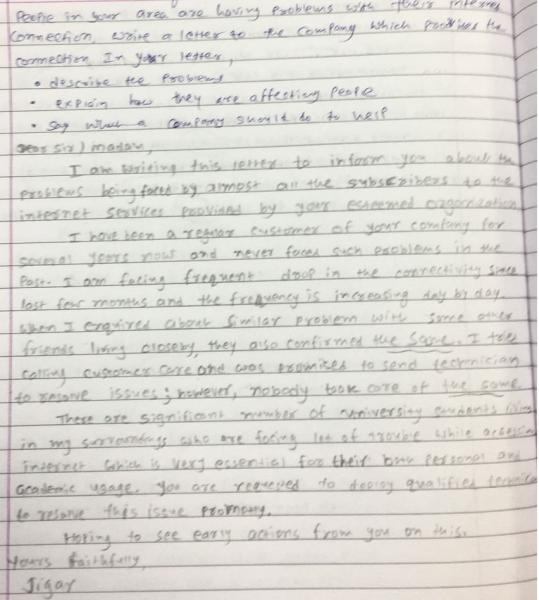 People in your area are having problems with their internet
connection, write a letter to the company which provides the
connection. In your letter,
• describe the problems
• explain how they are affecting people
• say what a company should do to help
Dear Sir / madam,
I am writing this letter to inform you about the
problems being faced by almost all the subscribers to the
internet services provided by your esteemed organization
I have been a regular customer of your company for
several years now and never faced such problems in the
past. I am facing frequent drop in the connectivity since
last few months and the frequency is increasing day by day.
when I enquired about similar problem with some other
friends living closeby, they also confirmed the same. I tried
calling customer care and was promised to send technician
to resolve issues; however, nobody took care of the same.
There are significant number of university students living
in my surroundings who are facing lot of trouble while accessing
internet which is very essential for their both personal and
academic usage. you are requested to deploy qualified technician
to resolve this issue promptly.
Hoping to see early actions from you on this.
yours faithfully,
Jigar